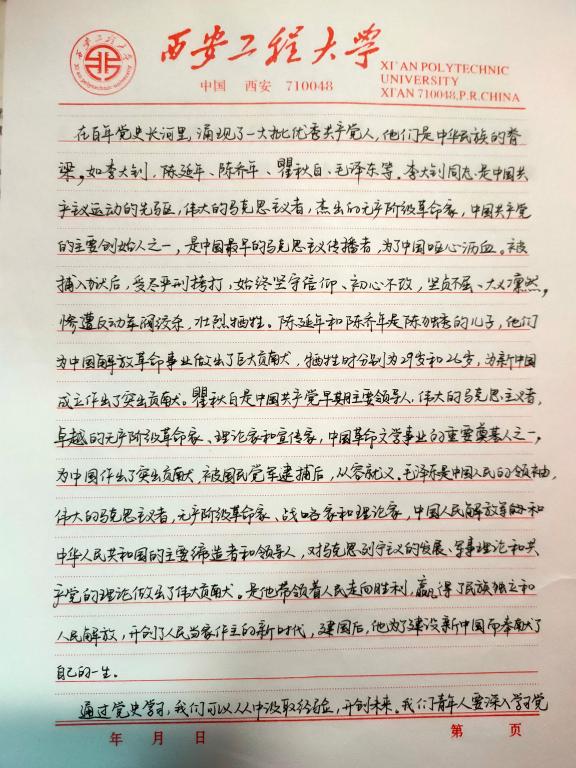 西安工程大学
XI'AN POLYTECHNIC
UNIVERSITY
中国 西安 710048
XI'AN 710048,P.R.CHINA
在百年党史长河里,涌现了一大批优秀共产党人,他们是中华民族的脊
梁,如李大钊、陈延年、陈乔年、瞿秋白、毛泽东等。李大钊同志是中国共
产主义运动的先驱,伟大的马克思主义者,杰出的无产阶级革命家,中国共产党
的主要创始人之一,是中国最早的马克思主义传播者,为了中国呕心沥血。被
捕入狱后,受尽严刑拷打,始终坚守信仰、初心不改,坚贞不屈、大义凛然,
惨遭反动军阀绞杀,壮烈牺牲。陈延年和陈乔年是陈独秀的儿子,他们
为中国解放革命事业做出了巨大贡献,牺牲时分别为29岁和26岁,为新中国
成立作出了突出贡献。瞿秋白是中国共产党早期主要领导人,伟大的马克思主义者,
卓越的无产阶级革命家、理论家和宣传家,中国革命文学事业的重要奠基人之一,
为中国作出了突出贡献,被国民党军逮捕后,从容就义。毛泽东是中国人民的领袖,
伟大的马克思主义者,无产阶级革命家、战略家和理论家,中国人民解放军的和
中华人民共和国的主要缔造者和领导人,对马克思列宁主义的发展、军事理论和共
产党的理论做出了伟大贡献。是他带领着人民走向胜利,赢得了民族独立和
人民解放,开创了人民当家作主的新时代,建国后,他为了建设新中国而奉献了
自己的一生。
通过党史学习,我们可以从中汲取经验,开创未来。我们青年人要深入学习党
年 月 日 第 页